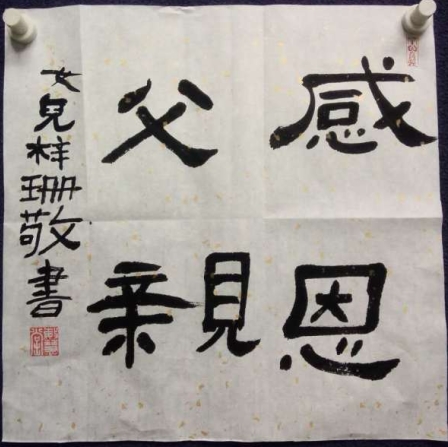 感恩
父親
女兒梓珊敬書